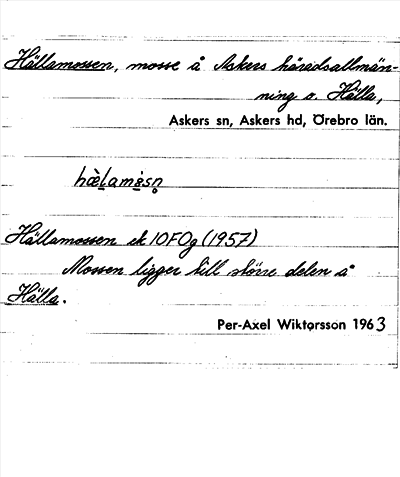 Hällamossen, mosse å Askers häradsallmän-
ning o. Hälla,
Askers sn, Askers hd, Örebro län.
Hällamossen ek 10F0g (1957)
Mossen ligger till större delen å
Hälla.
Per-Axel Wiktorsson 1963